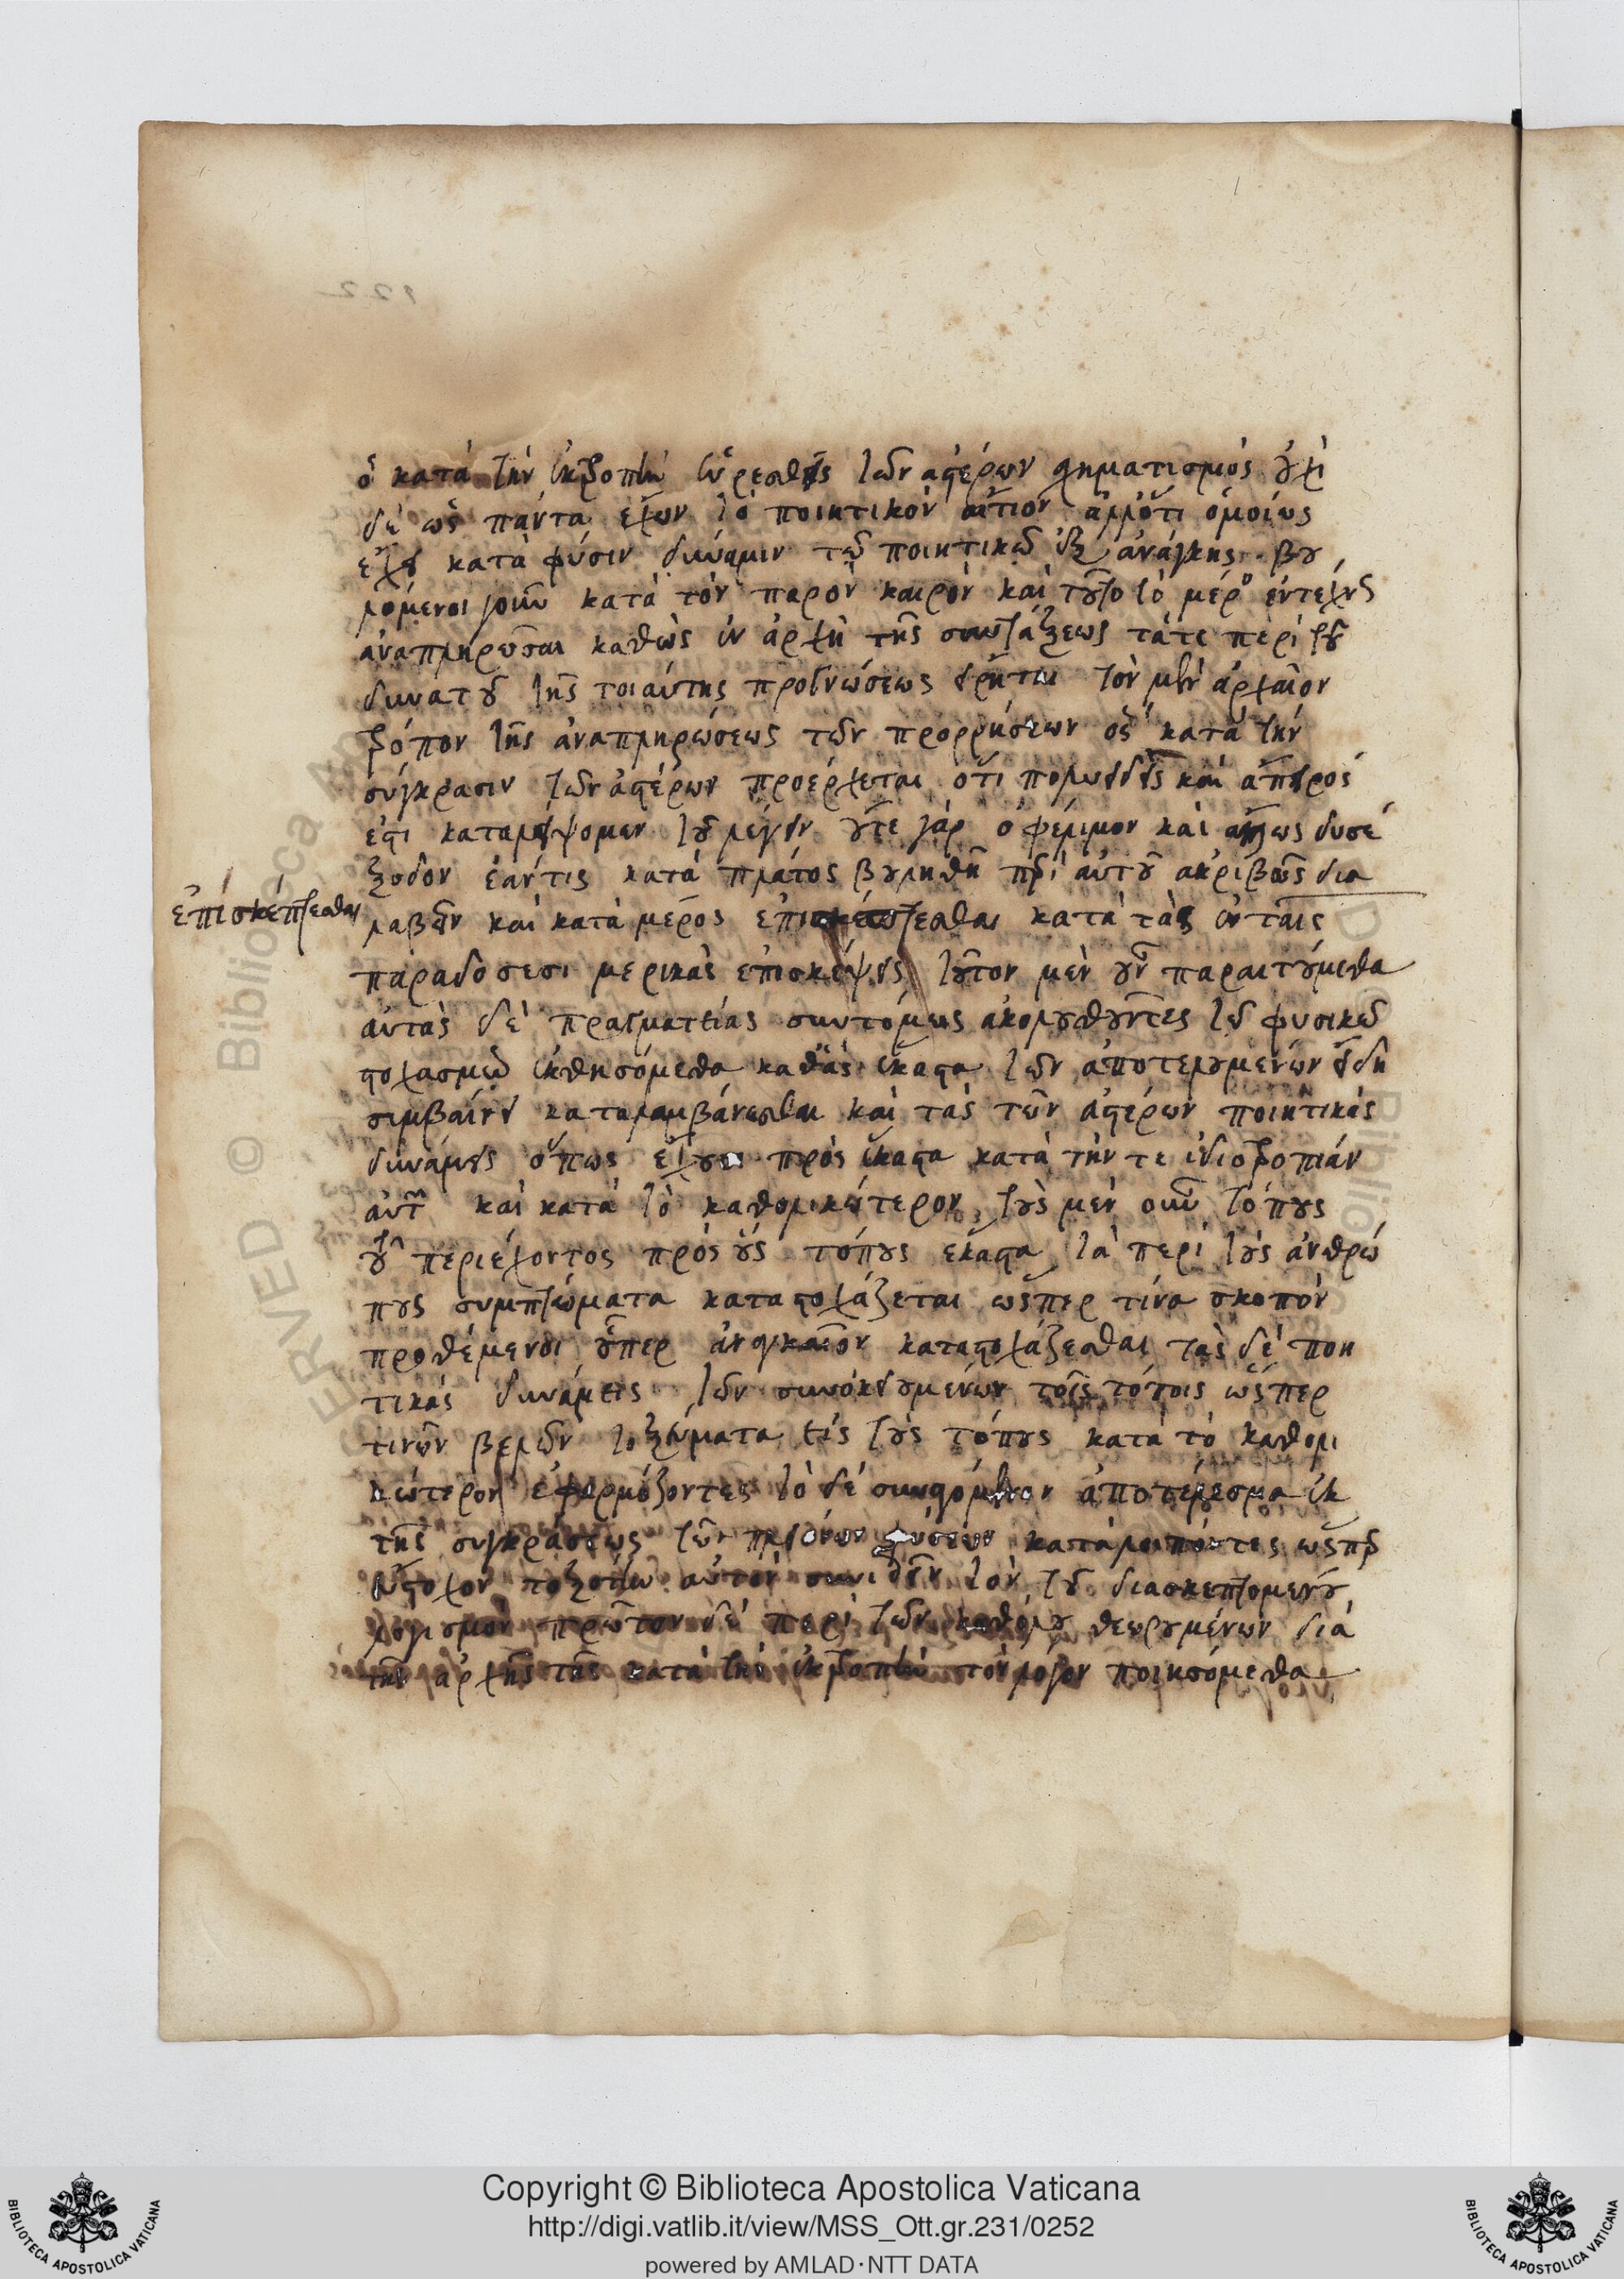 122
ὁ κατὰ τὴν ἐκτροπὴν εὑρεθεὶς τῶν ἀστέρων σχηματισμὸς οὐχὶ
δὲ ὡς πάντα ἔχων τὸ ποιητικὸν αἴτιον ἀλλ' ὅτι ὁμοίως
ἔχει κατὰ φύσιν δύναμιν τῷ ποιητικῷ ἐξ ἀνάγκης. βου
λόμενοι γοῦν κατὰ τὸν παρὸν καιρὸν καὶ τοῦτο τὸ μέρος ἐντέχνως
ἀναπληρῶσαι καθὼς ἐν ἀρχῇ τῆς συντάξεως τά τε περὶ τοῦ
δυνατοῦ τῆς τοιαύτης προγνώσεως εἴρηται τὸν μὲν ἀρχαῖον
τρόπον τῆς ἀναπληρώσεως τῶν προρρήσεων ὃς κατὰ τὴν
σύγκρασιν τῶν ἀστέρων προέρχεται ὅτι πολυειδὴς καὶ ἄπειρός
ἐστι καταλείψομεν τοῦ λέγειν οὔτε γὰρ ὀφέλιμον καὶ ἄλλως δυσέ
ξοδον ἐάν τις κατὰ πλάτος βουληθῇ περὶ αὐτοῦ ἀκριβῶς δια
λαβεῖν καὶ κατὰ μέρος ἐπισκέπτεσθαι κατὰ τὰς ἐν ταῖς
ἐπισκέπτεσθαι
παραδόσεσι μερικὰς ἐπισκέψεις τοῦτον μὲν οὖν παραιτούμεθα
αὐτὰς δὲ πραγματείας συντόμως ἀκολουθοῦντες τῷ φυσικῷ
στοχασμῷ ἐκθησόμεθα καθ' ἃς ἕκαστα τῶν ἀποτελουμένων εἴδη
συμβαίνει καταλαμβάνεσθαι καὶ τὰς τῶν ἀστέρων ποιητικὰς
δυνάμεις ὅπως ἔχουσι πρὸς ἕκαστα κατὰ τήν τε ἰδιοτροπίαν
αὐτῶν καὶ κατὰ τὸ καθολικώτερον τοὺς μὲν οὖν τόπους
τοῦ περιέχοντος πρὸς οὓς τόπους ἕκαστα τὰ περὶ τοὺς ἀνθρώ
πους συμπτώματα καταστοχάζεται ὥσπερ τινὰ σκοπὸν
προθέμενοι οὗπερ ἀναγκαῖον καταστοχάζεσθαι τὰς δὲ ποιη
τικὰς δυνάμεις τῶν συνοικουμένων τοῖς τόποις ὥσπερ
τινῶν βελῶν τοξεύματα εἰς τοὺς τόπους κατὰ τὸ καθολι
κώτερον ἐφαρμόζοντες τὸ δὲ συναγόμενον ἀποτέλεσμα ἐκ
τῆς συγκράσεως τῶν πλειόνων φύσεων καταλειπόντες ὥσπερ
εὔστοχον τοξότην αὐτὸν συνιδεῖν τὸν τοῦ διασκεπτομένου
λογισμὸν πρῶτον δὲ περὶ τῶν καθόλου θεωρουμένων διὰ
τῆς ἀρχῆς τῆς κατὰ τὴν ἐκτροπὴν τὸν λόγον ποιησόμεθα
Copyright © Biblioteca Apostolica Vaticana
http://digi.vatlib.it/view/MSS_Ott.gr.231/0252
powered by AMLAD·NTT DATA
BIBLIOTECA APOSTOLICA VATICANA
BIBLIOTECA APOSTOLICA VATICANA